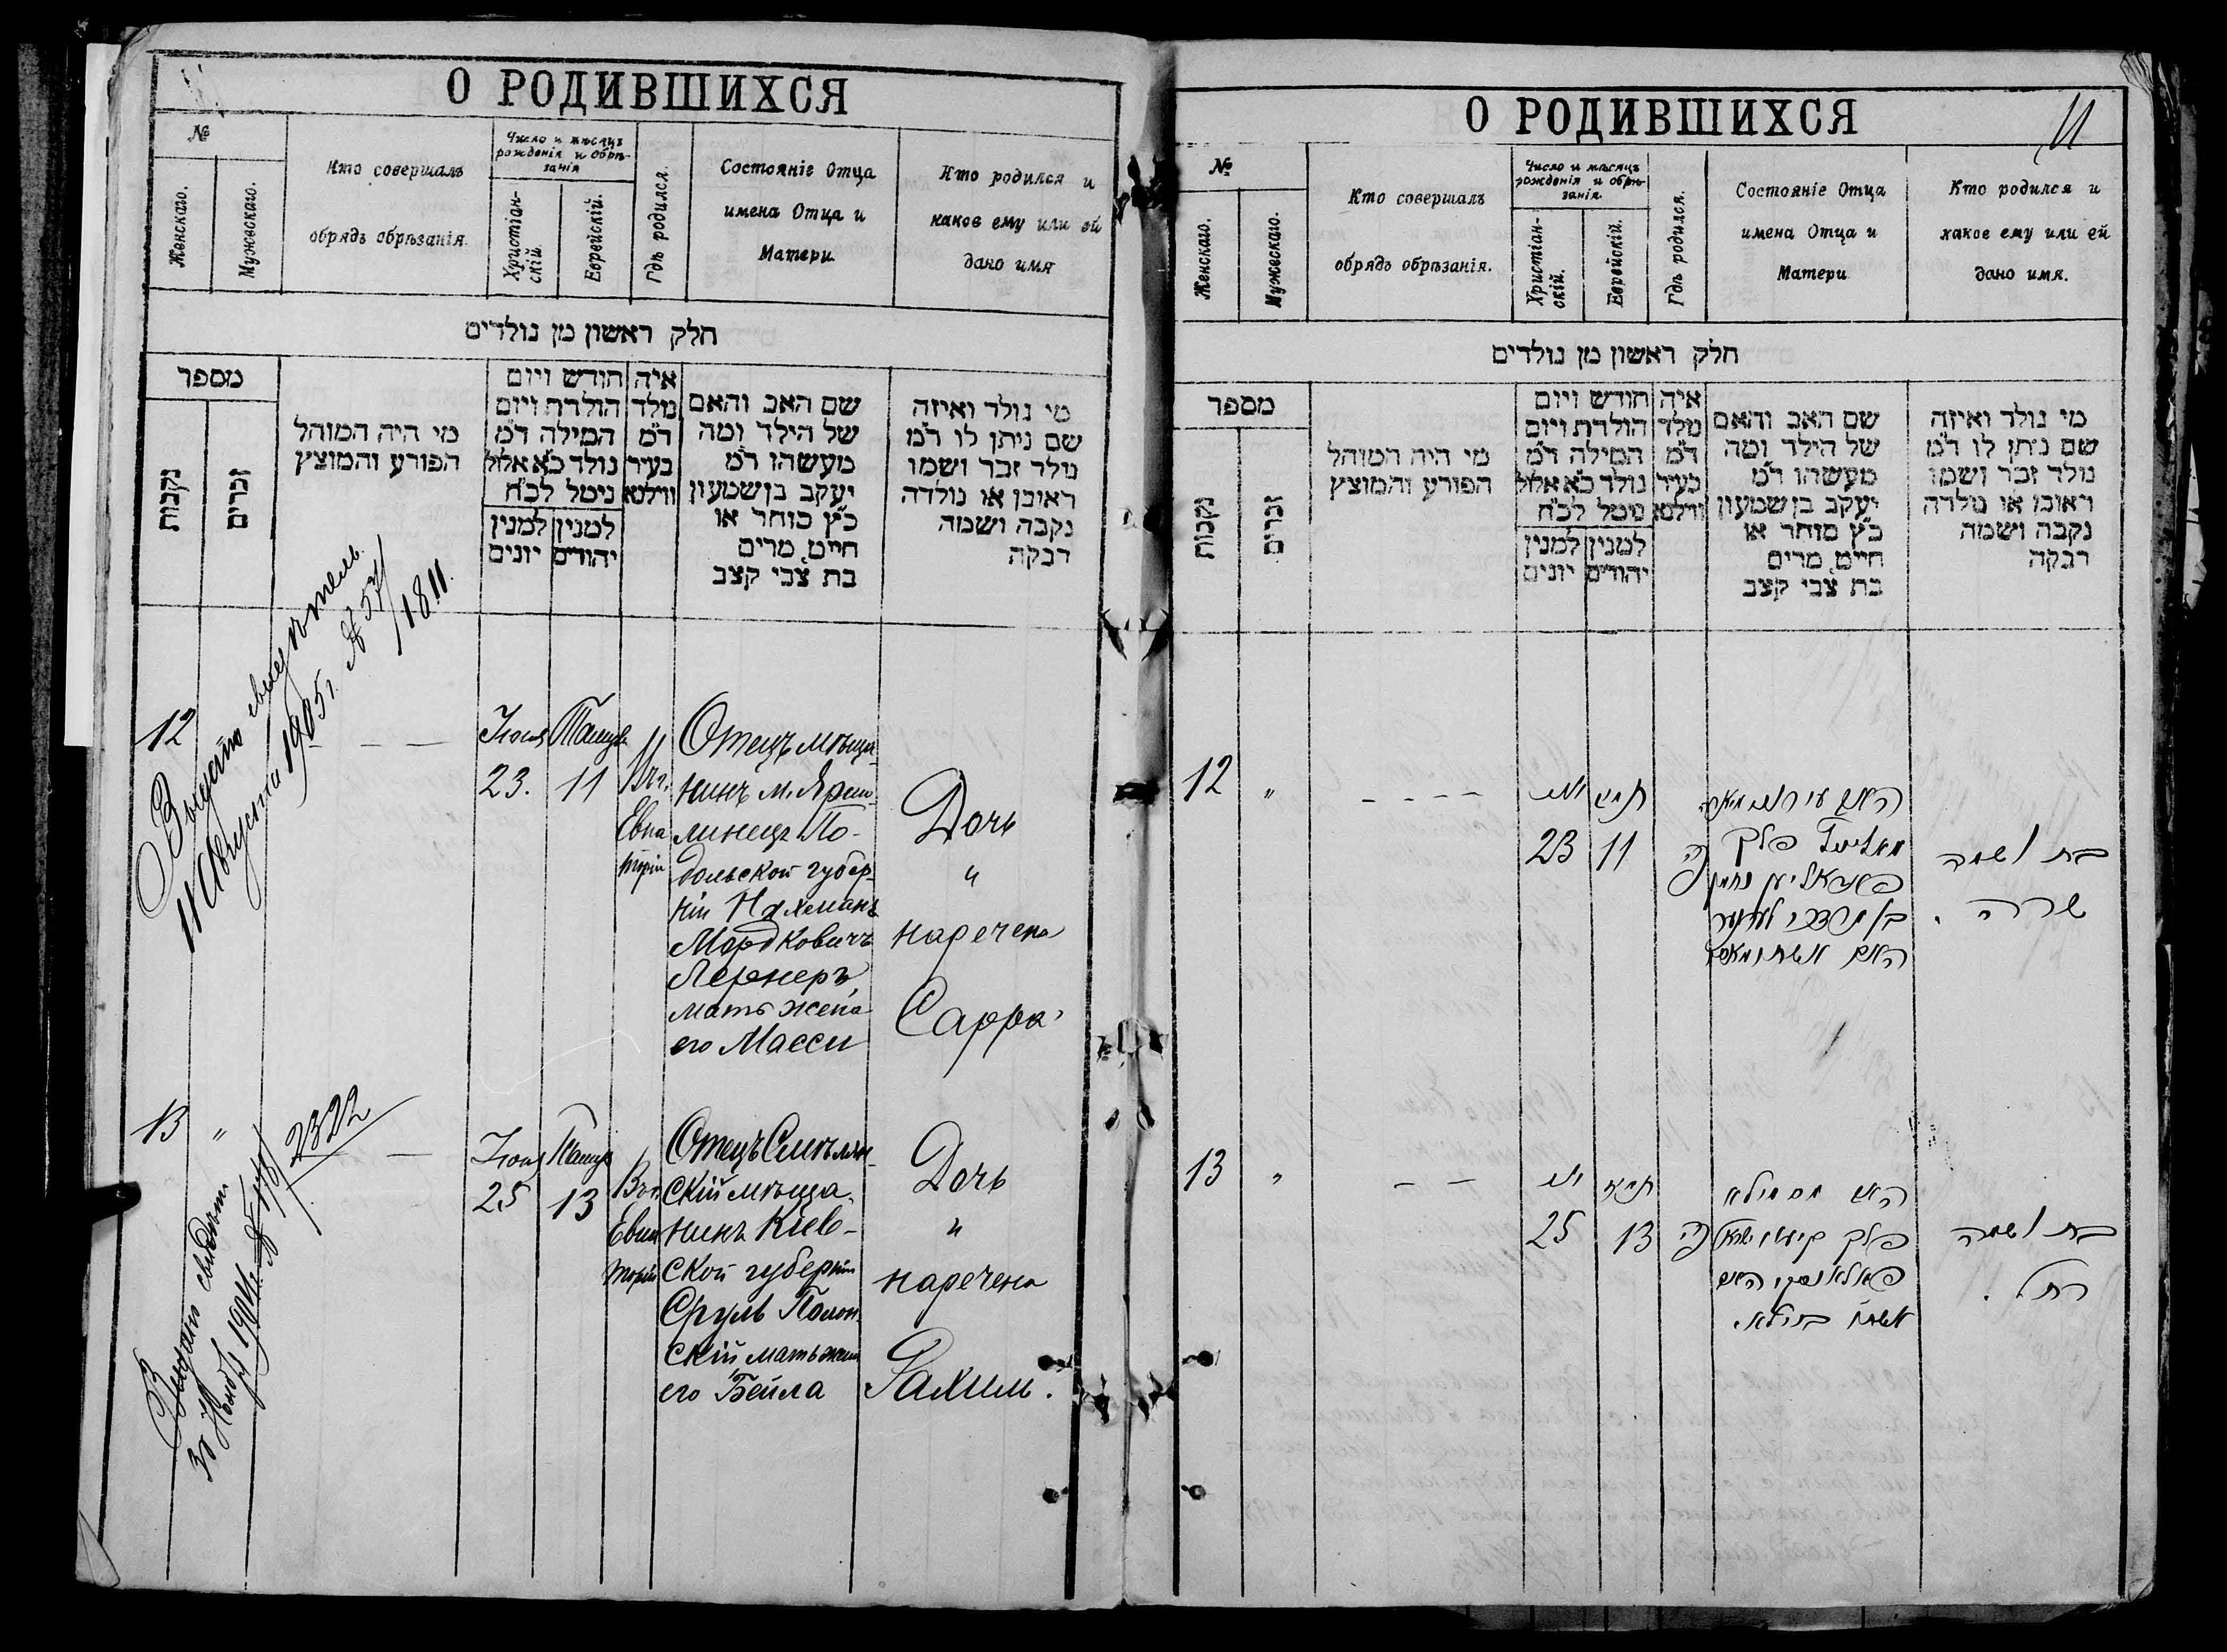 О РОДИВШИХСЯ
№
Женскаго.
Мужескаго.
Кто совершалъ
обрядъ обрѣзанія.
Число и мѣсяцъ
рожденія и обрѣ-
занія
Христіан-
скій.
Еврейскій.
Гдѣ родился.
Состояніе Отца
имена Отца и
Матери
Кто родился и
какое ему или ей
дано имя
חלק ראשון מן נולדים
מספר
נקבות
זכרים
מי היה המוהל
הפורע והמוצץ
חודש ויום
הולדת ויום
המילה ד״מ
נולד כ״א אלול
ניטל לכ״ח
למנין
יהודים
למנין
יונים
איה
מלד
ד״מ
בעיר
ווילנא
שם האב והאם
של הילד ומה
מעשהו ד״מ
יעקב בן שמעון
כ״ץ סוחר או
חייט, מרים
בת צבי קצב
מי נולד ואיזה
שם ניתן לו ד״מ
נולד זכר ושמו
ראובן או נולדה
נקבה ושמה
רבקה
12
Выдано свидѣтель.
11 Августа 1905 г. № 57/
1811.
— —
Іюня
23.
Тамуз
11
Въ г.
Евпа
торіи
Отецъ мѣща-
нинъ м. Ярмо-
линецъ По-
дольской губер-
ніи Нахманъ
Мордковичъ
Лернеръ,
мать жена
его Масси
Дочь
"
наречена
Сарра
13 "
Выдано свидѣт.
30 Ноябр 1904 г.
2322
—
Іюня
25
Тамуз
13
Въ г.
Евпа
торіи
Отецъ Смѣлян-
скій мѣща-
нинъ Кіев-
ской губерніи
Сруль Полон-
скій мать жена
его Бейла
Дочь
"
наречена
Рахиль.
О РОДИВШИХСЯ
11
№
Женскаго.
Мужескаго.
Кто совершалъ
обрядъ обрѣзанія.
Число и мѣсяцъ
рожденія и обрѣ-
занія.
Христіан-
скій.
Еврейскій.
Гдѣ родился.
Состояніе Отца
имена Отца и
Матери
Кто родился и
какое ему или ей
дано имя.
חלק ראשון מן נולדים
מספר
נקבות
זכרים
מי היה המוהל
הפורע והמוצץ
חודש ויום
הולדת ויום
המילה ד״מ
נולד כ״א אלול
ניטל לכ״ח
למנין
יהודים
למנין
יונים
איה
מלד
ד״מ
בעיר
ווילנא
שם האב והאם
של הילד ומה
מעשהו ד״מ
יעקב בן שמעון
כ״ץ סוחר או
חייט, מרים
בת צבי קצב
מי נולד ואיזה
שם ניתן לו ד״מ
נולד זכר ושמו
ראובן או נולדה
נקבה ושמה
רבקה
12 "
- - - -
23
11
פלך
נחמן
בן מרדכי לערנער
האם אשתו מאסי
בת ושמה
שרה.
13 "
— —
25
13
האב
פלך
האם
אשתו ביילא.
בת ושמה
רחל.